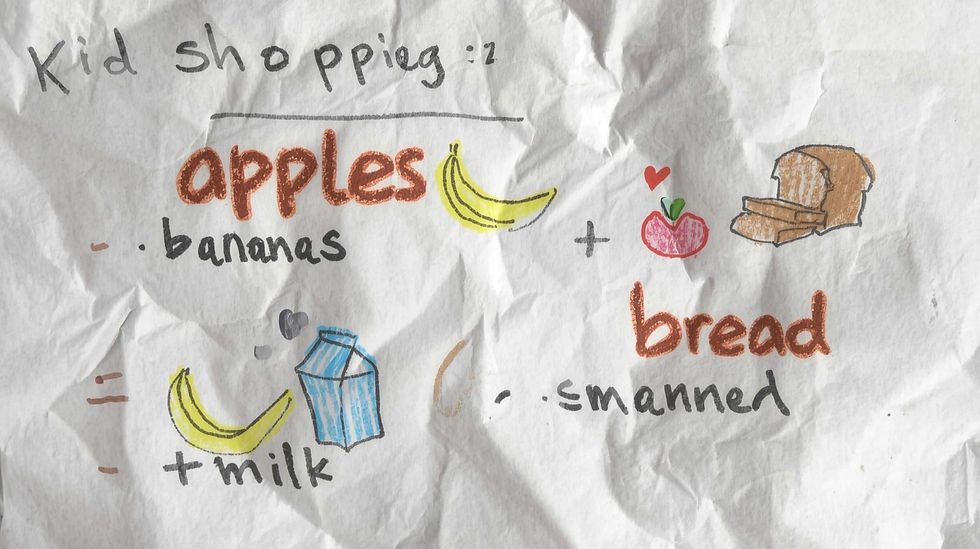 Kid shoppieg :2
apples
- . bananas
+
bread
- .smanned
+ milk